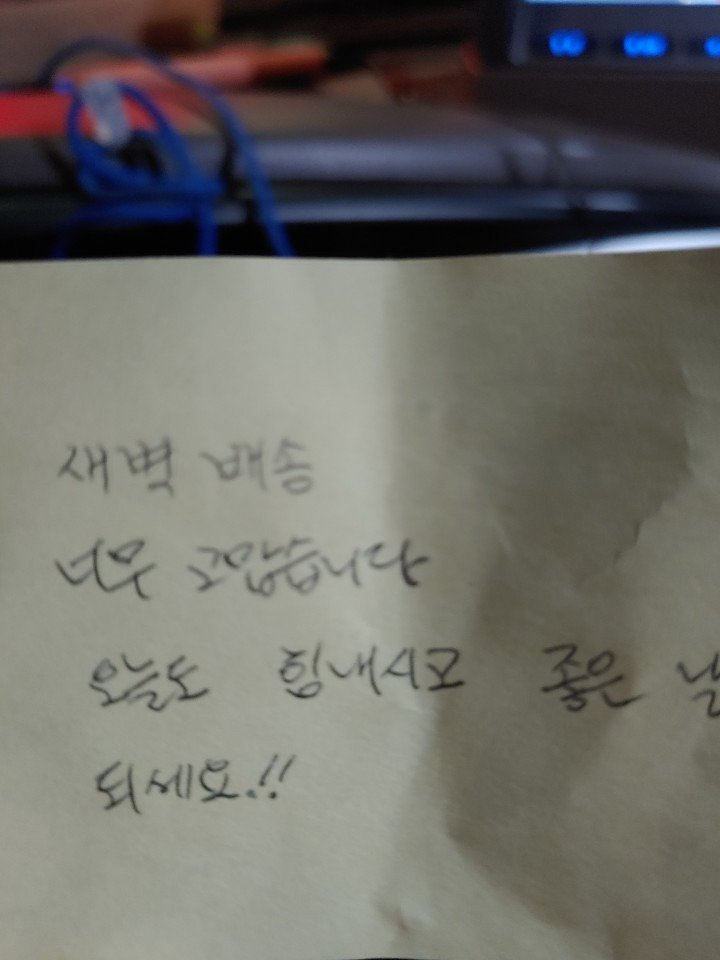 새벽 배송
너무 고맙습니다
오늘도 힘내시고 좋은 날
되세요!!